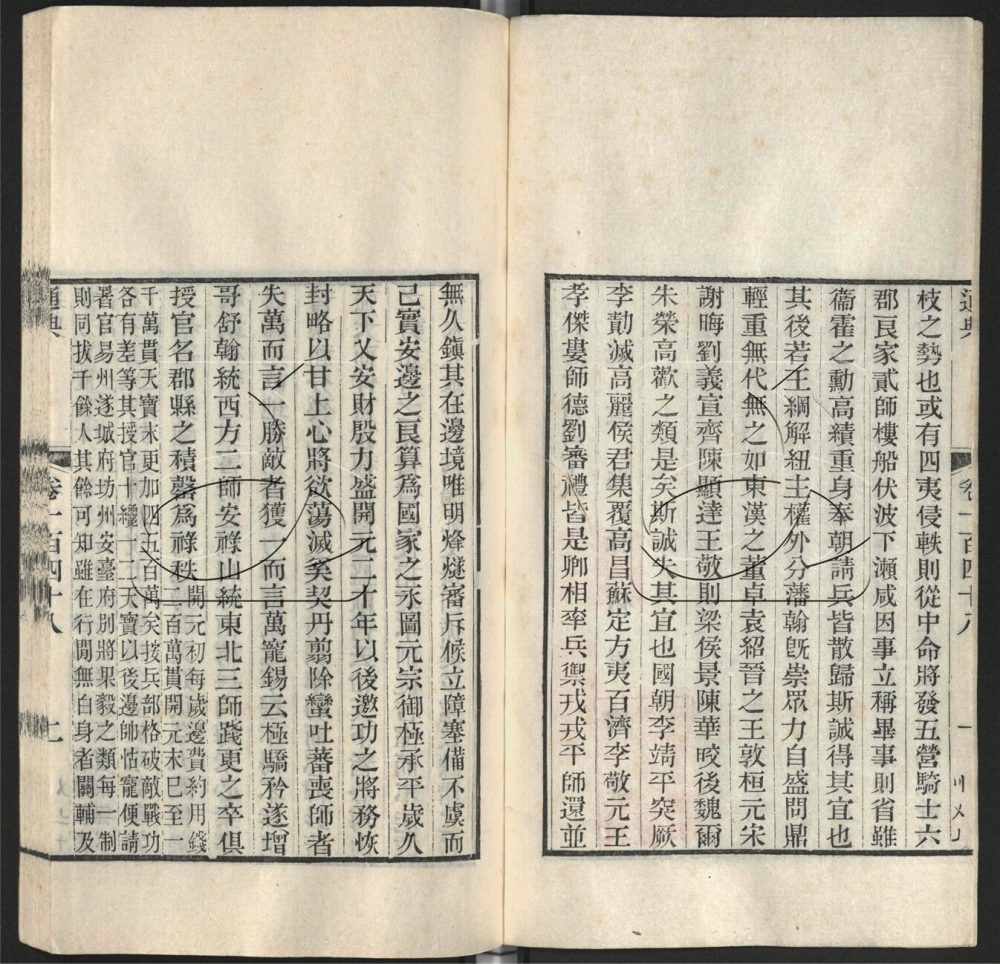 通典
卷一百四十八
一
枝之勢也或有四夷侵軼則從中命將發五營騎士六
郡良家貳師樓船伏波下瀨咸因事立稱畢事則省雖
衞霍之勳高績重身奉朝請兵皆散歸斯誠得其宜也
其後若王綱解紐主權外分藩翰旣崇眾力自盛問鼎
輕重無代無之如東漢之董卓袁紹晉之王敦桓元宋
謝晦劉義宣齊陳顯達王敬則梁侯景陳華皎後魏爾
朱榮高歡之類是矣斯誠失其宜也國朝李靖平突厥
李勣滅高麗侯君集覆高昌蘇定方夷百濟李敬元王
孝傑婁師德劉審禮皆是卿相率兵禦戎戎平師還並
無久鎭其在邊境唯明烽燧審斥候立障塞備不虞而
已實安邊之良算爲國家之永圖元宗御極承平歲久
天下乂安財殷力盛開元二十年以後邀功之將務恢
封略以甘上心將欲蕩滅奚契丹翦除蠻吐蕃喪師者
失萬而言一勝敵者獲一而言萬寵錫云極驕矜遂增
哥舒翰統西方二師安祿山統東北三師踐更之卒俱
授官名郡縣之積罄爲祿秩
開元初每歲邊費約用錢
二百萬貫開元末已至一
千萬貫天寶末更加四五百萬矣按兵部格破敵戰功
各有差等其授官十纔一二天寶以後邊帥怙寵便請
署官易州遂城府坊州安臺府別將果毅之類每一制
則同拔千餘人其餘可知雖在行間無白身者關輔及
通典
卷一百四十八